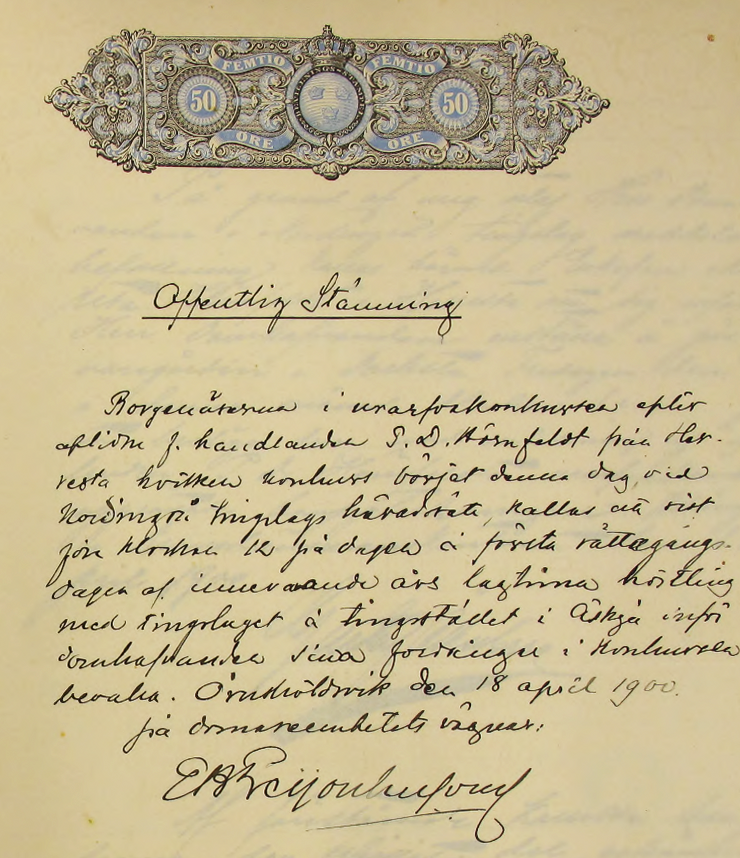 FEMTIO FEMTIO
50 50
ÖRE ÖRE
Offentlig Stämning
Borgenärerna i urarfvakonkursen efter
aflidne f. handlanden P. D. Hörnfeldt från Her-
resta hvilken konkurs börjat denna dag vid
Nordingrå tingslags häradsrätt, kallas att sist
före klockan 12 på dagen å första rättegångs-
dagen af innevarande års lagtima hösting
med tingslaget å tingsstället i Äskja inför
domhafvanden sina fordringar i konkursen
bevaka. Örnsköldsvik den 18 april 1900.
på domareembetets vägnar: